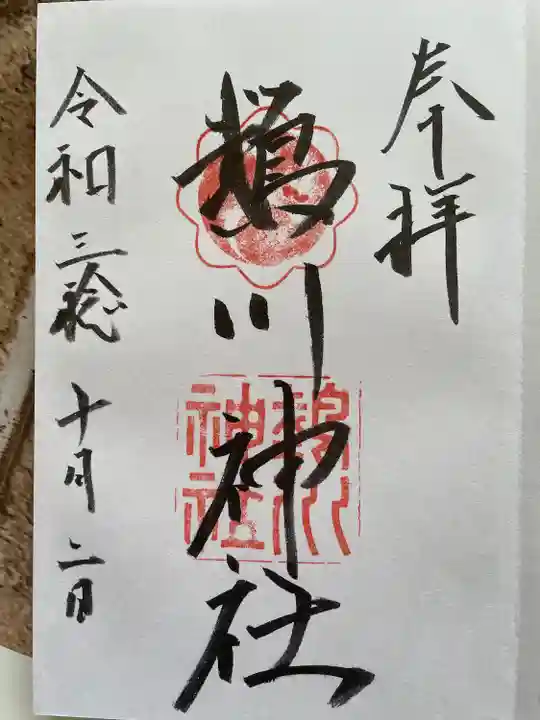 奉拝
鵜川神社
鵜川
神社
令和三稔十月二日